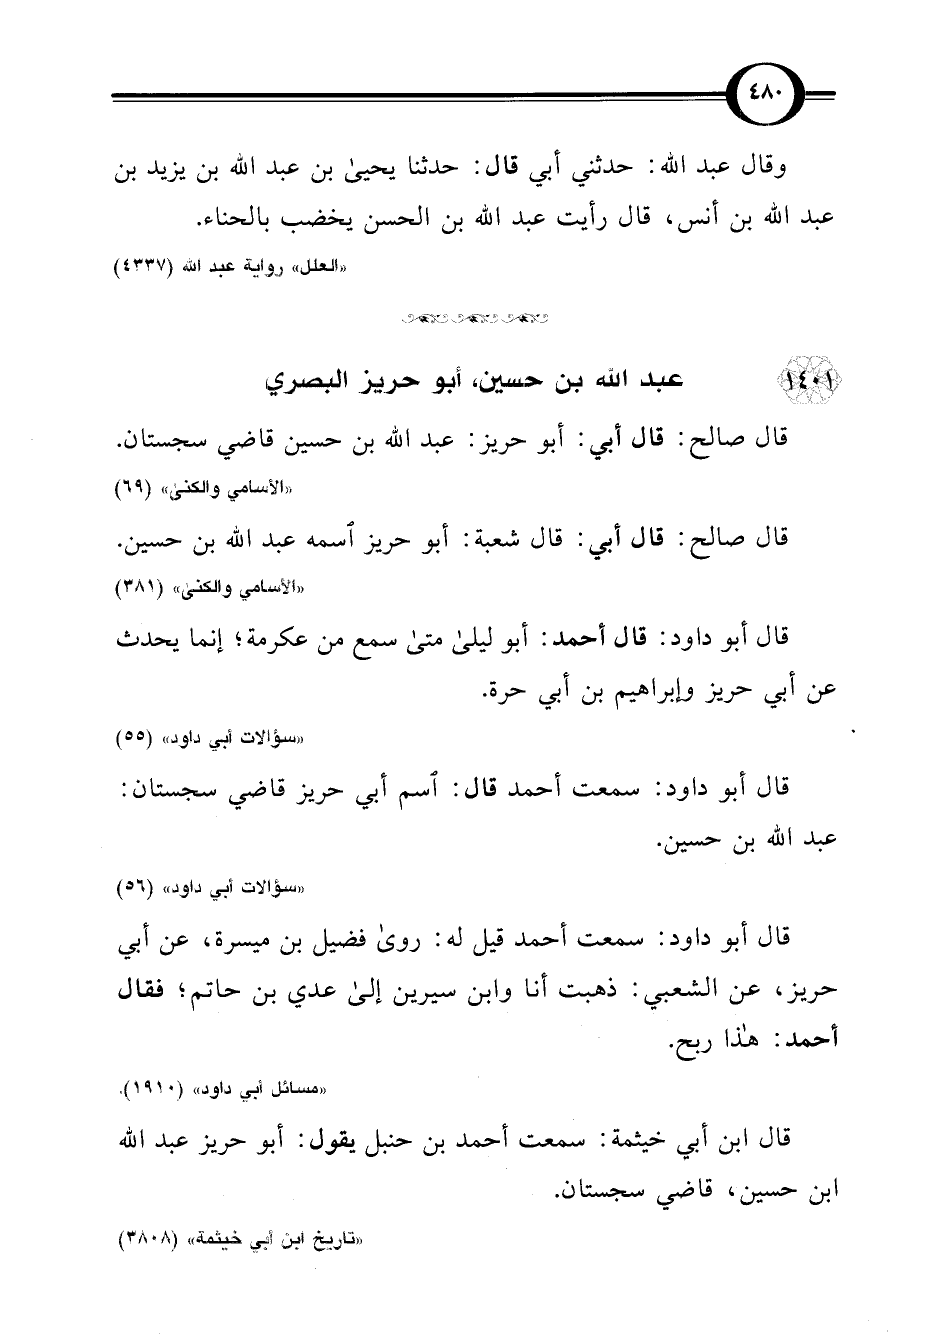 ٤٨٠
وقال عبد الله: حدثني أبي قال: حدثنا يحيىٰ بن عبد الله بن يزيد بن
عبد الله بن أنس، قال رأيت عبد الله بن الحسن يخضب بالحناء.
«العلل» رواية عبد الله (٤٣٣٧)
١٤٠١ عبد الله بن حسين، أبو حريز البصري
قال صالح: قال أبي: أبو حريز: عبد الله بن حسين قاضي سجستان.
«الأسامي والكنىٰ» (٦٩)
قال صالح: قال أبي: قال شعبة: أبو حريز ٱسمه عبد الله بن حسين.
«الأسامي والكنىٰ» (٣٨١)
قال أبو داود: قال أحمد: أبو ليلىٰ متىٰ سمع من عكرمة؛ إنما يحدث
عن أبي حريز وإبراهيم بن أبي حرة.
«سؤالات أبي داود» (٥٥)
قال أبو داود: سمعت أحمد قال: ٱسم أبي حريز قاضي سجستان:
عبد الله بن حسين.
«سؤالات أبي داود» (٥٦)
قال أبو داود: سمعت أحمد قيل له: روىٰ فضيل بن ميسرة، عن أبي
حريز، عن الشعبي: ذهبت أنا وابن سيرين إلىٰ عدي بن حاتم؛ فقال
أحمد: هٰذا ربح.
«مسائل أبي داود» (١٩١٠).
قال ابن أبي خيثمة: سمعت أحمد بن حنبل يقول: أبو حريز عبد الله
ابن حسين، قاضي سجستان.
«تاريخ ابن أبي خيثمة» (٣٨٠٨)